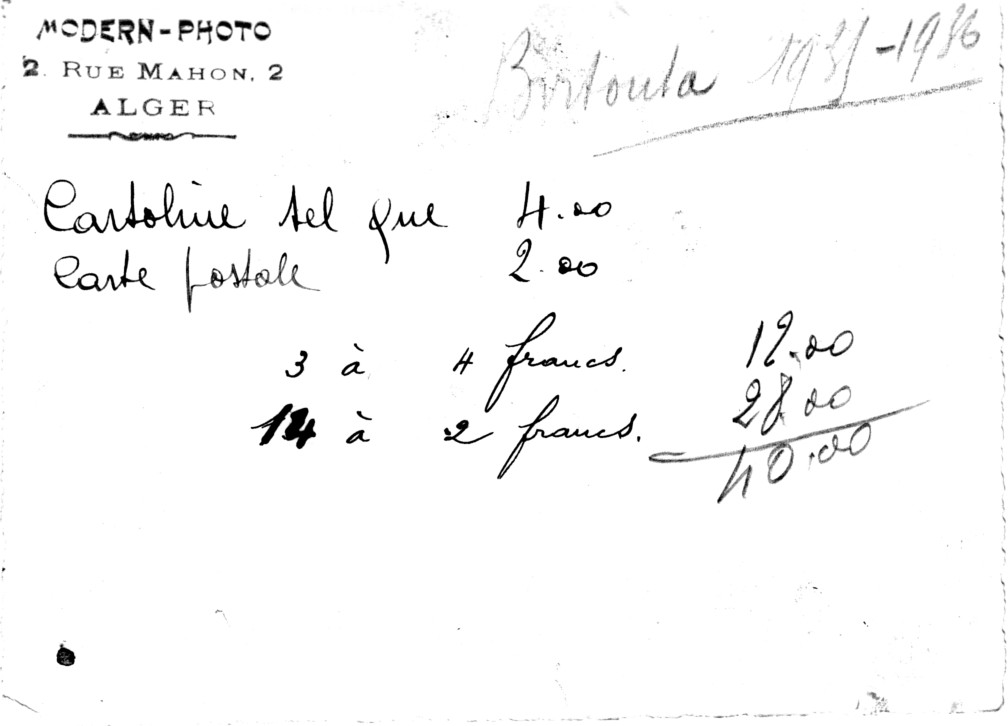 MODERN-PHOTO
2. RUE MAHON, 2
ALGER
Birtouta 1935-1936
Cartoline tel que 4.00
Carte postale 2.00
3 à 4 francs. 12.00
14 à 2 francs. 28.00
40.00